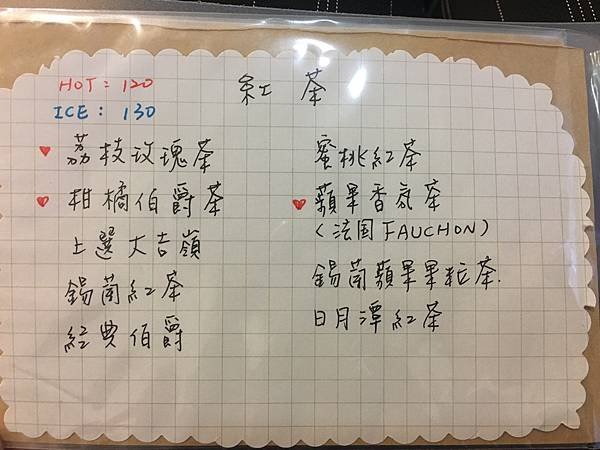 HOT: 120
ICE: 130
紅 茶
荔枝玫瑰茶
柑橘伯爵茶
上選大吉嶺
錫蘭紅茶
經典伯爵
蜜桃紅茶
蘋果香氛茶
(法国 FAUCHON)
錫蘭蘋果果粒茶.
日月潭紅茶